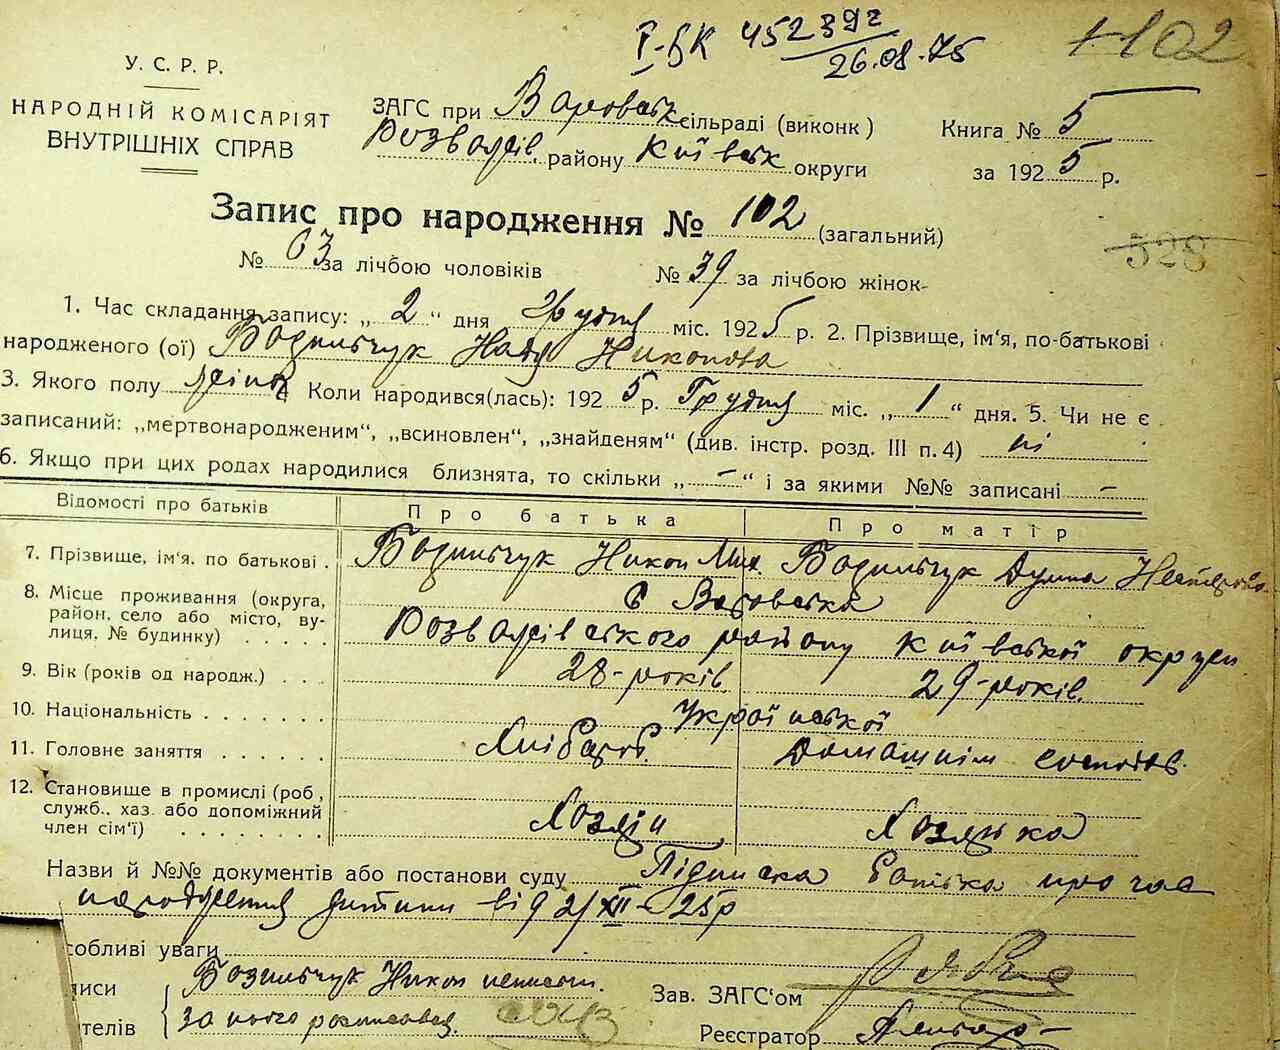 І-БК 452392
26.08.75
102
У. С. Р. Р.
НАРОДНІЙ КОМІСАРІЯТ
ВНУТРІШНІХ СПРАВ
ЗАГС при Варовськ сільраді (виконк)
Розважів. району Київськ округи
Книга № 5
за 1925 р.
Запис про народження № 102 (загальний)
№ 63 за лічбою чоловіків № 39 за лічбою жінок
528
1. Час складання запису: „ 2 “ дня Грудня міс. 1925 р. 2. Прізвище, ім'я, по-батькові
народженого (ої) Бодильчук Надя Никонова
3. Якого полу жіноч Коли народився(лась): 1925 р. Грудня міс. „ 1 “ дня. 5. Чи не є
записаний: „мертвонародженим“, „всиновлен“, „знайденям“ (див. інстр. розд. III п. 4) ні
6. Якщо при цих родах народилися близнята, то скільки „ – “ і за якими №№ записані –
Відомості про батьків Про батька Про матір
7. Прізвище, ім'я. по батькові . Бодильчук Никон Мих. Бодильчук Нестерова
8. Місце проживання (округа,
район, село або місто, ву-
лиця, № будинку) . . . .
С Варовська
Розважівського району Київської округи
9. Вік (років од народж.) . . . 28-років. 29-років.
10. Національність . . . . . . . Української
11. Головне заняття . . . . . . Хлібороб. Домашнім господ.
12. Становище в промислі (роб,
служб., хаз. або допоміжний
член сім'ї) . . . . . . . .
Хозяін Хозяйка
Назви й №№ документів або постанови суду Підписка батька про час
народження дитини від 2/XII-25р
собливі уваги
писи Бодильчук Никон неписьм.
телів за нього росписався
Зав. ЗАГС'ом
Реєстратор